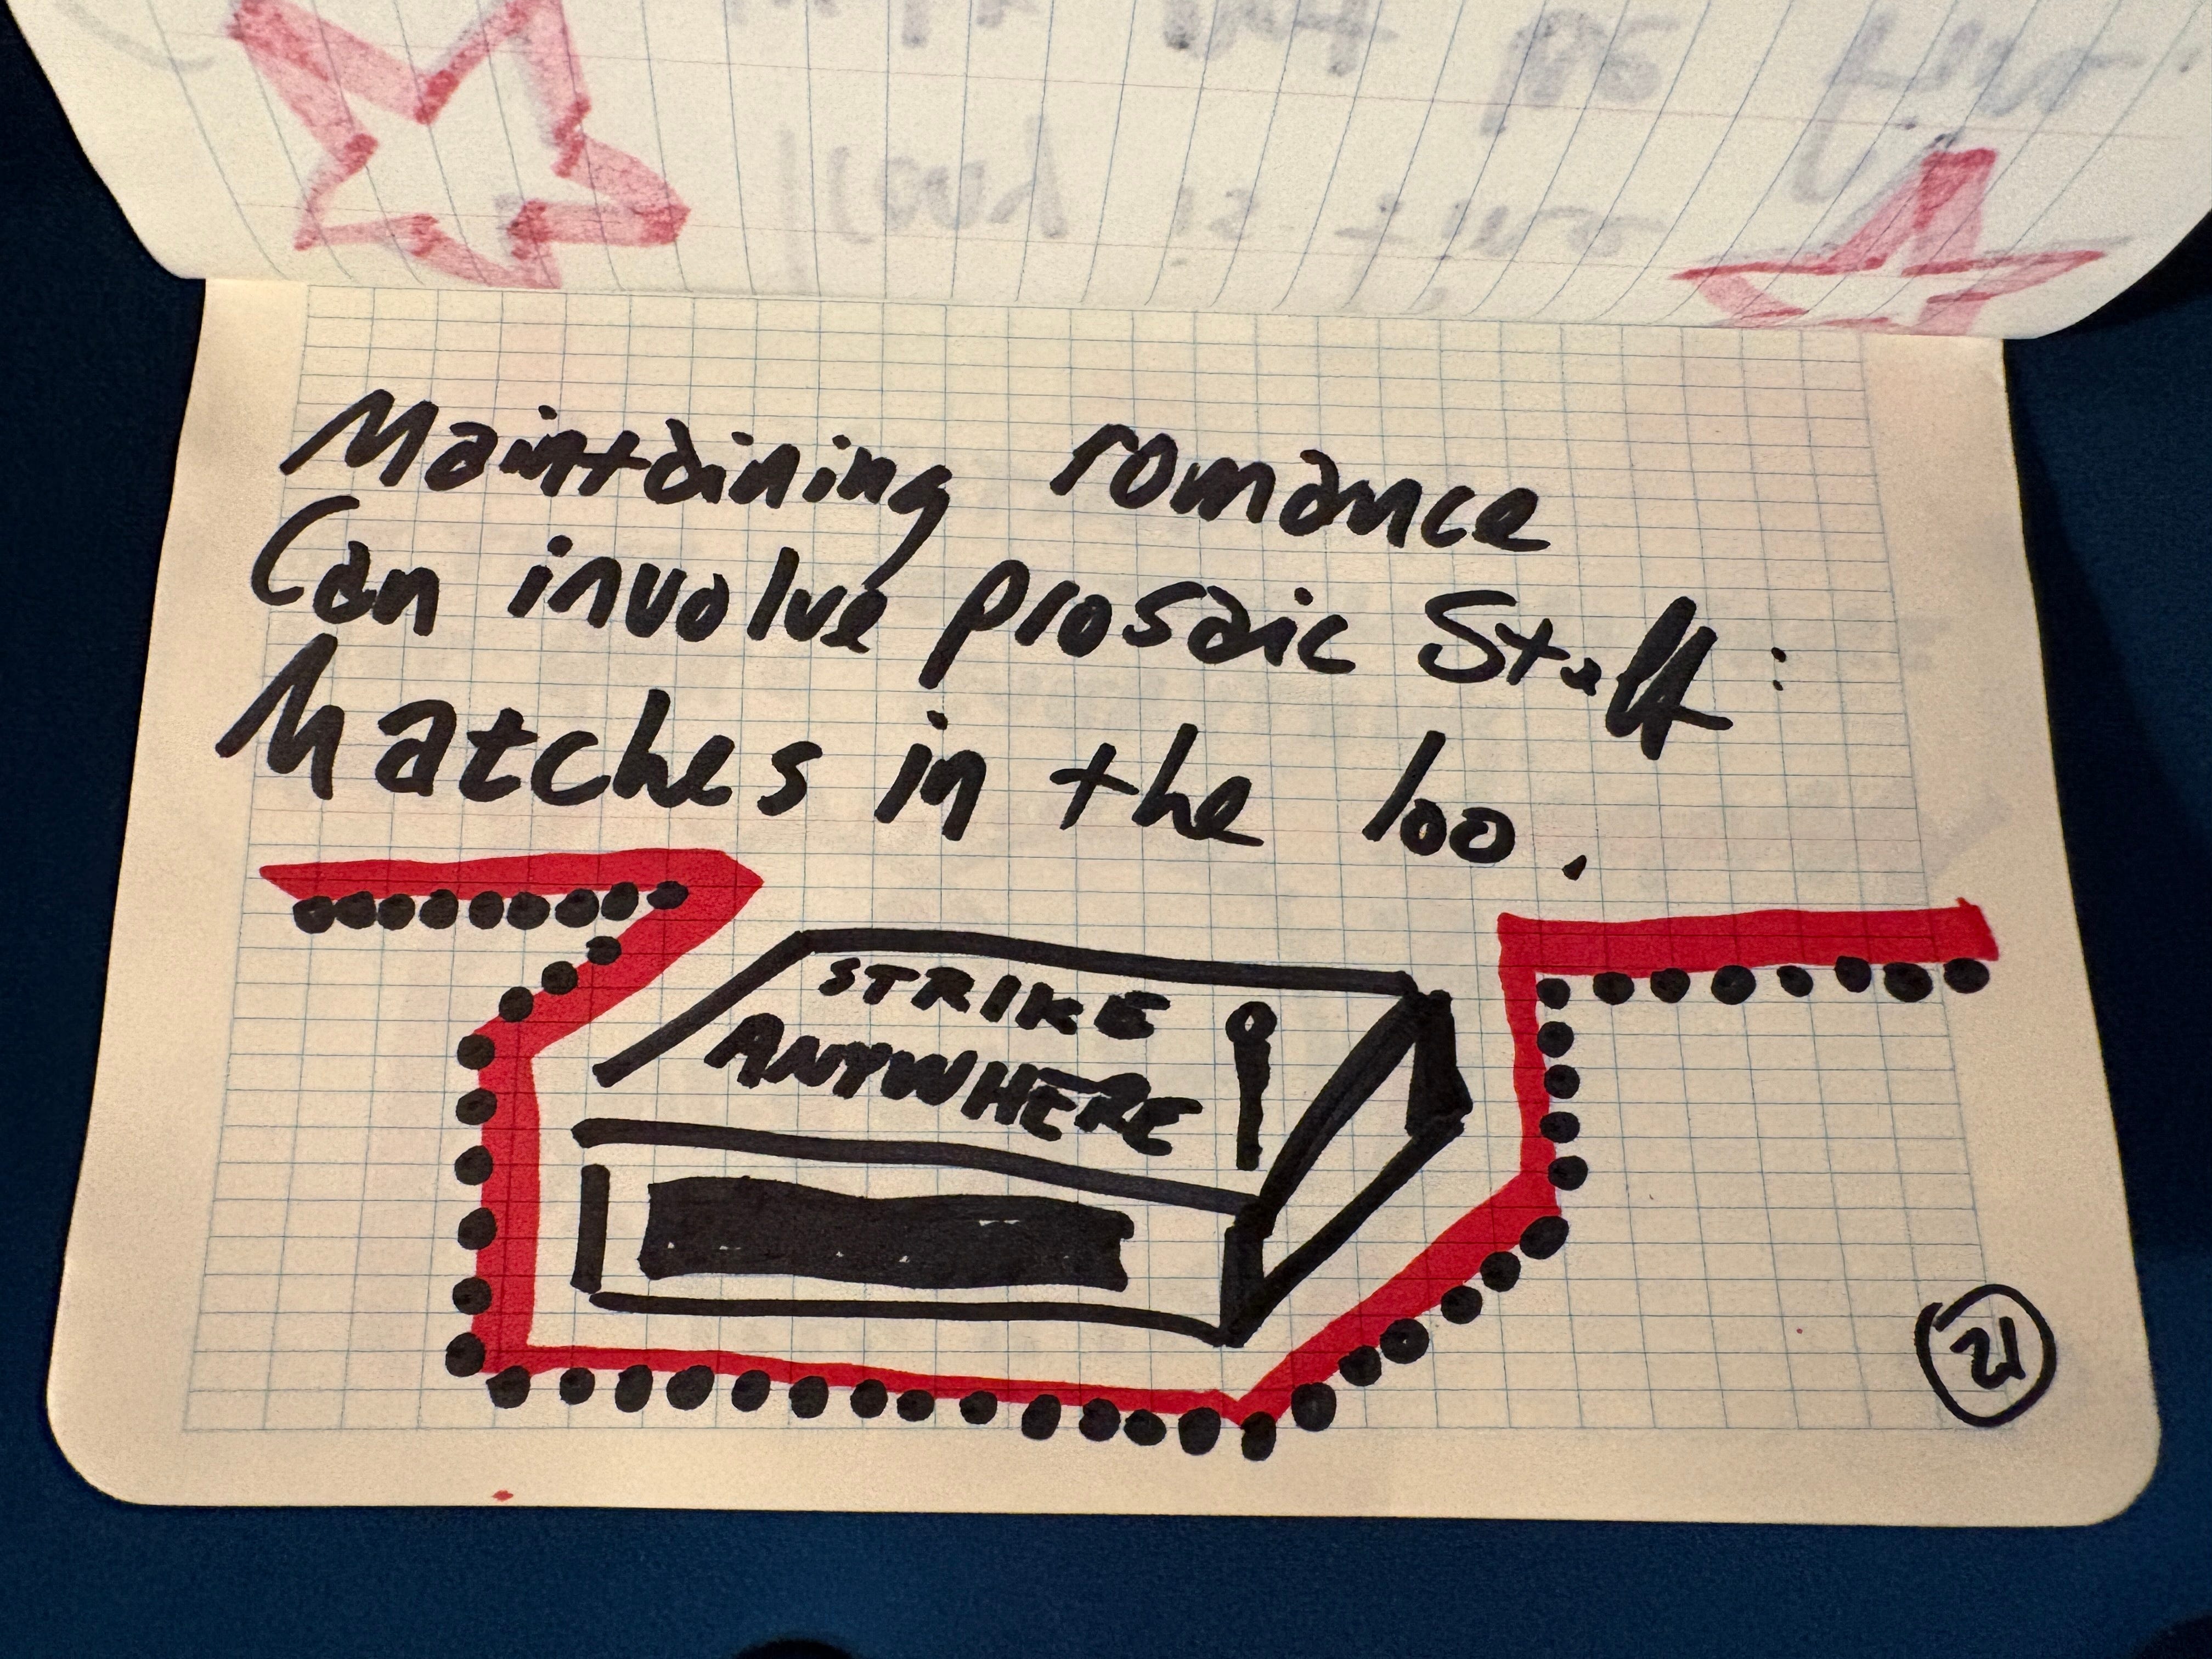 Maintaining romance
Can involve prosaic Stuff:
Matches in the loo.
STRIKE
ANYWHERE
21